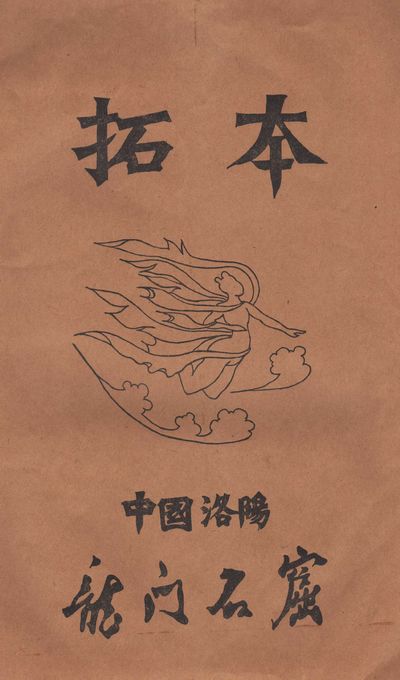 拓本
中國洛陽
龍门石窟